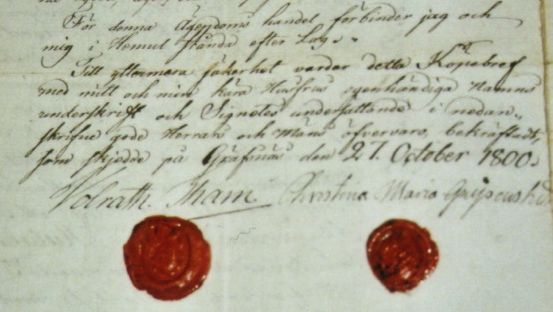 För denna Ägendoms handel förbinder jag och
mig i Hemul stånda efter Lag.
Till yttermera säkerhet varder detta Köpebref
med mitt och min kära Husfrus egenhändiga Namns
underskrift och Signetes undersättande i nedan-
skrifne gode Herrars och Mäns öfvervaro, bekräftadt,
som skjedde på Gräfsnäs den 27. October 1800.
Volrath Tham Christina Maria